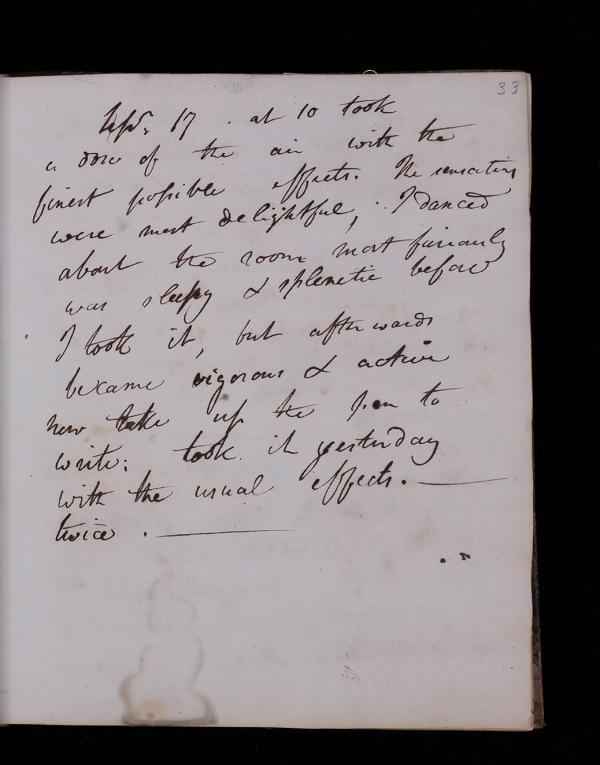 33
Sepr. 17 . at 10 took
a dose of the air with the
finest possible effects. The sensations
were most delightful, I danced
about the room most furiously
was sleepy & splenetic before
I took it, but afterwards
became vigorous & active
now take up the pen to
write: took it yesterday
with the usual effects. —
twice . —